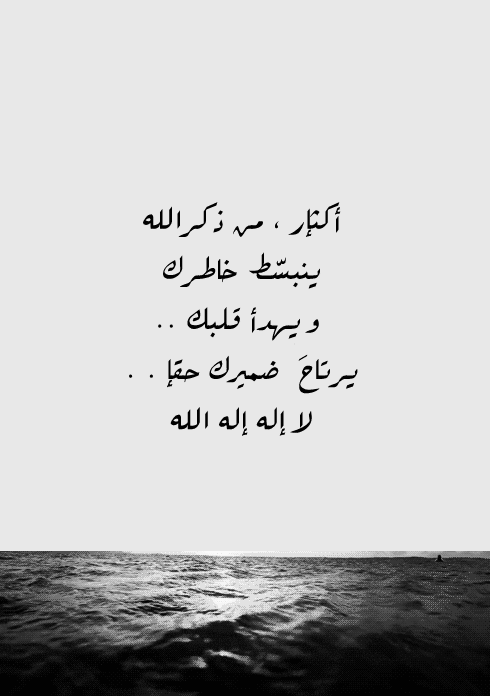 أكثإر ، من ذكر الله
ينبسّط خاطرك
و يهدأ قلبك ..
يرتاحَ ضميرك حقإ . .
لا إله إله الله